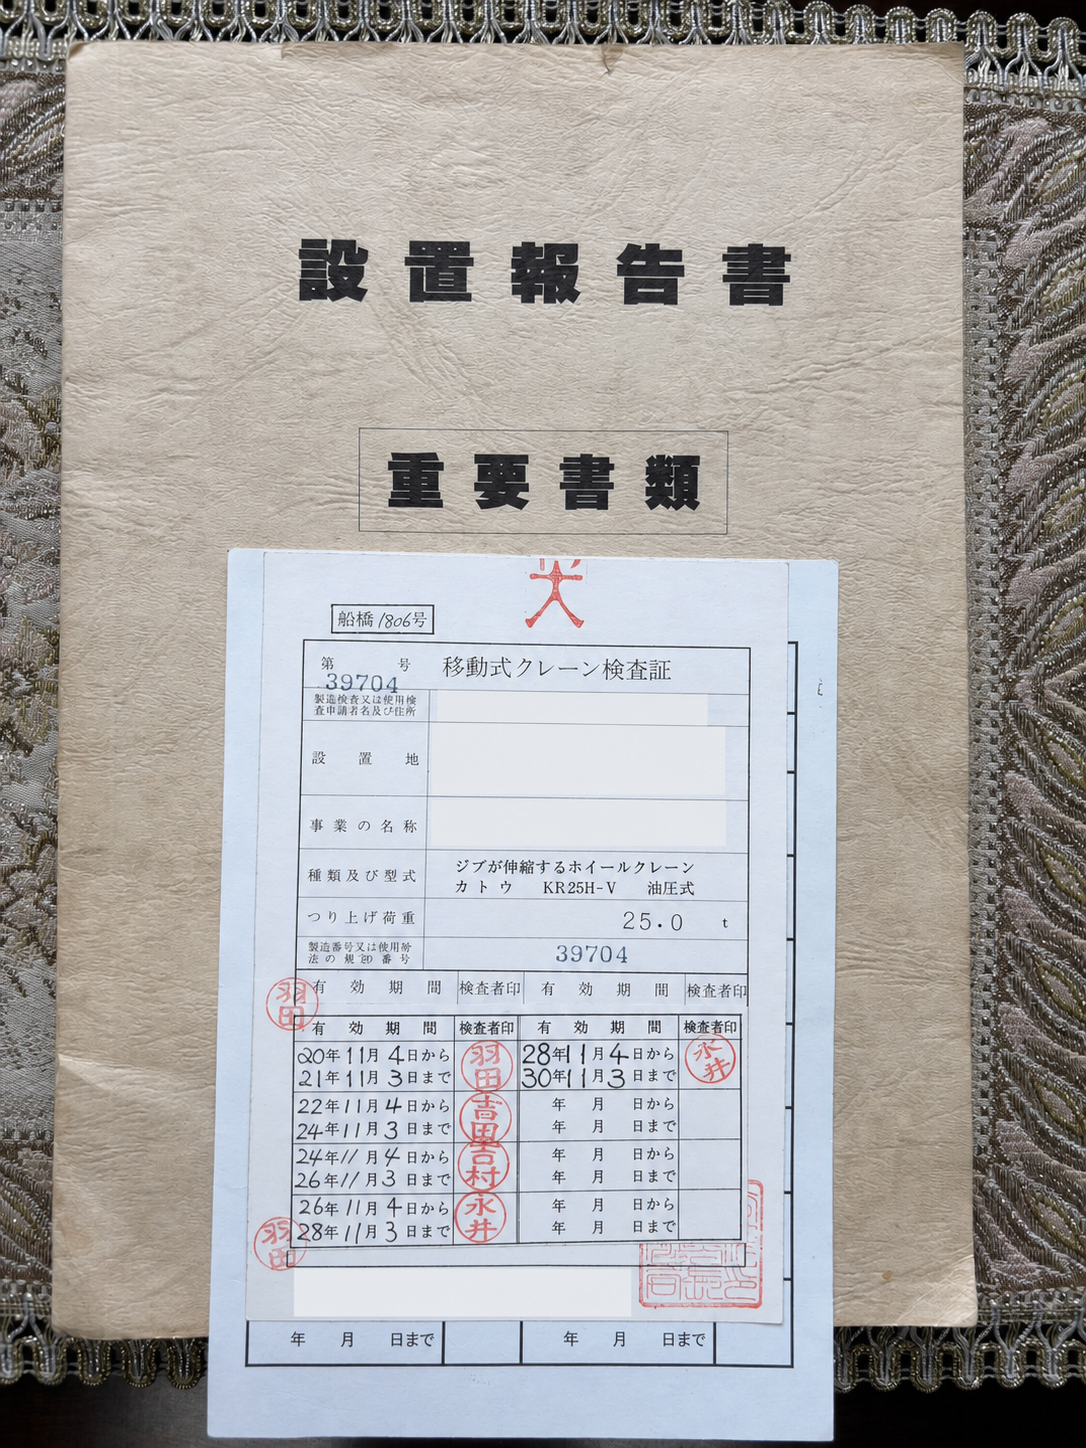 設置報告書
重要書類
船橋1806号
第 号 移動式クレーン検査証
39704
製造検査又は使用検
査申請者名及び住所
設置地
事業の名称
種類及び型式 ジブが伸縮するホイールクレーン
カトウ KR25H-V 油圧式
つり上げ荷重 25.0 t
製造番号又は使用
法の 番号 39704
有効期間 検査者印 有効期間 検査者印
羽田
有効期間 検査者印 有効期間 検査者印
20年11月4日から 羽田 28年11月4日から 永井
21年11月3日まで 30年11月3日まで
22年11月4日から 吉田 年 月 日から
24年11月3日まで 年 月 日まで
24年11月4日から 吉村 年 月 日から
26年11月3日まで 年 月 日まで
26年11月4日から 永井 年 月 日から
28年11月3日まで 年 月 日まで
羽田
年 月 日まで 年 月 日まで